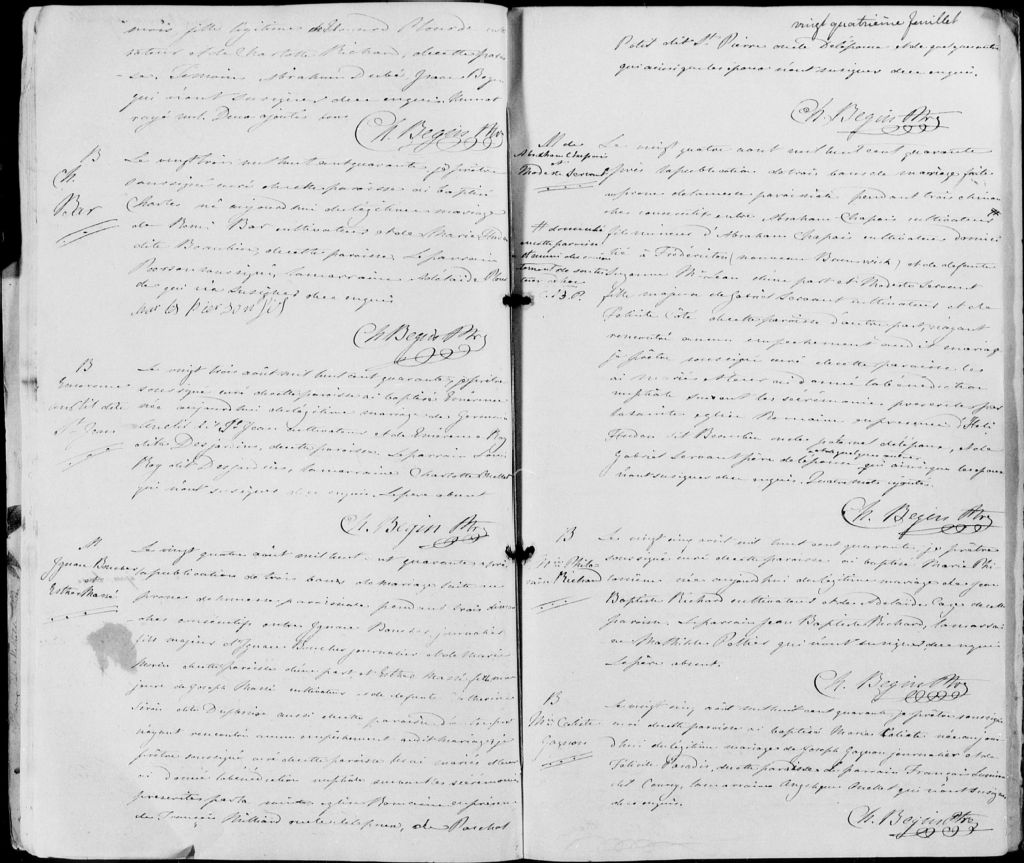 née fille légitime de Honoré Plourde
et de Charlotte Richard, de cette parois-
se. Témoins Abraham Dubé,
qui n'ont su signer de ce enquis. Un mot
rayé nul. Deux ajoutés bons
Ch. Begin Ptre
B
Ch.
Bar
Le vingt trois août mil huit cent quarante, je prêtre
soussigné curé de cette paroisse ai baptisé
Charles né aujourd'hui du légitime mariage
de Bar cultivateur et de Marie
dite Beaulieu, de cette paroisse. Le parrain
soussigné, la marraine Adélaïde
de qui n'a su signer de ce enquis.
Pierson fils
Ch. Begin Ptre
B
Emérence
Anctil dite
St. Jean
Le vingt trois août mil huit cent quarante, je prêtre
soussigné curé de cette paroisse ai baptisé Emérence
née aujourd'hui du légitime mariage de Germain
Anctil dit St. Jean cultivateur et de Emérence Roy
dite Desjardins, de cette paroisse. Le parrain
Roy dit Desjardins, la marraine Charlotte
qui n'ont su signer de ce enquis. Le père absent
Ch. Begin Ptre
M
Ignace Boucher
et
Esther Massé
Le vingt quatre août mil huit cent quarante après
la publication de trois bans de mariage faite au
prône de messe paroissiale pendant trois diman-
ches consécutifs entre Ignace Boucher, journalier
fils majeur d'Ignace Boucher journalier et de Marie
de cette paroisse d'une part et Esther Massé fille ma-
jeure de Joseph Massé cultivateur et de défunte
dite Desjardins aussi de cette paroisse d'autre part
n'ayant rencontré aucun empêchement au dit mariage je
prêtre soussigné curé de cette paroisse les ai mariés et leur
ai donné la bénédiction nuptiale suivant les cérémonies
prescrites par la sainte église Romaine en présence
de François Milliard oncle de l'époux, de Paschal
vingt quatrième feuillet
Petit dit St. Pierre oncle de l'épouse et de quelques autres
qui ainsi que les époux n'ont su signer de ce enquis.
Ch. Begin Ptre
M de
Abraham Chapais
et
Modeste Servant
# domicilié
en cette paroisse
et muni du consen-
tement de son tu-
teur
C. B. P.
Le vingt quatre août mil huit cent quarante
après la publication de trois bans de mariage faite
au prône de la messe paroissiale pendant trois diman-
ches consécutifs entre Abraham Chapais cultivateur #
fils mineur d'Abraham Chapais cultivateur domici-
lié à Frédéricton (nouveau Brunswick) et de défunte
Suzanne McLean d'une part et Modeste Servant
fille majeure de Gabriel Servant cultivateur et de
Félicité Côté de cette paroisse d'autre part, n'ayant
rencontré aucun empêchement au dit mariage
je prêtre soussigné curé de cette paroisse les
ai mariés et leur ai donné la bénédiction
nuptiale suivant les cérémonies prescrites par
la sainte église Romaine en présence
dit Beaulieu oncle paternel de l'époux, et de
Gabriel Servant père de l'épouse et de quelques autres qui ainsi que les époux
n'ont su signer de ce enquis. Quatre mots ajoutés.
Ch. Begin Ptre
B
Mie Phila-
Richard
Le vingt cinq août mil huit cent quarante, je prêtre
soussigné curé de cette paroisse ai baptisé Marie Phi-
lomène née aujourd'hui du légitime mariage de Jean
Baptiste Richard cultivateur et de Adélaïde de cette
paroisse. Le parrain Jean Baptiste Richard, la marrai-
ne Mathilde qui n'ont su signer de ce enquis
Le père absent.
Ch. Begin Ptre
B
Mie Calixte
Gagnon
Le vingt cinq août mil huit cent quarante, je prêtre soussigné
curé de cette paroisse ai baptisé Marie Calixte née aujour-
d'hui du légitime mariage de Joseph Gagnon journalier et de
Félicité Paradis, de cette paroisse. Le parrain François
dit, la marraine Angélique qui n'ont su signer
de ce enquis.
Ch. Begin Ptre